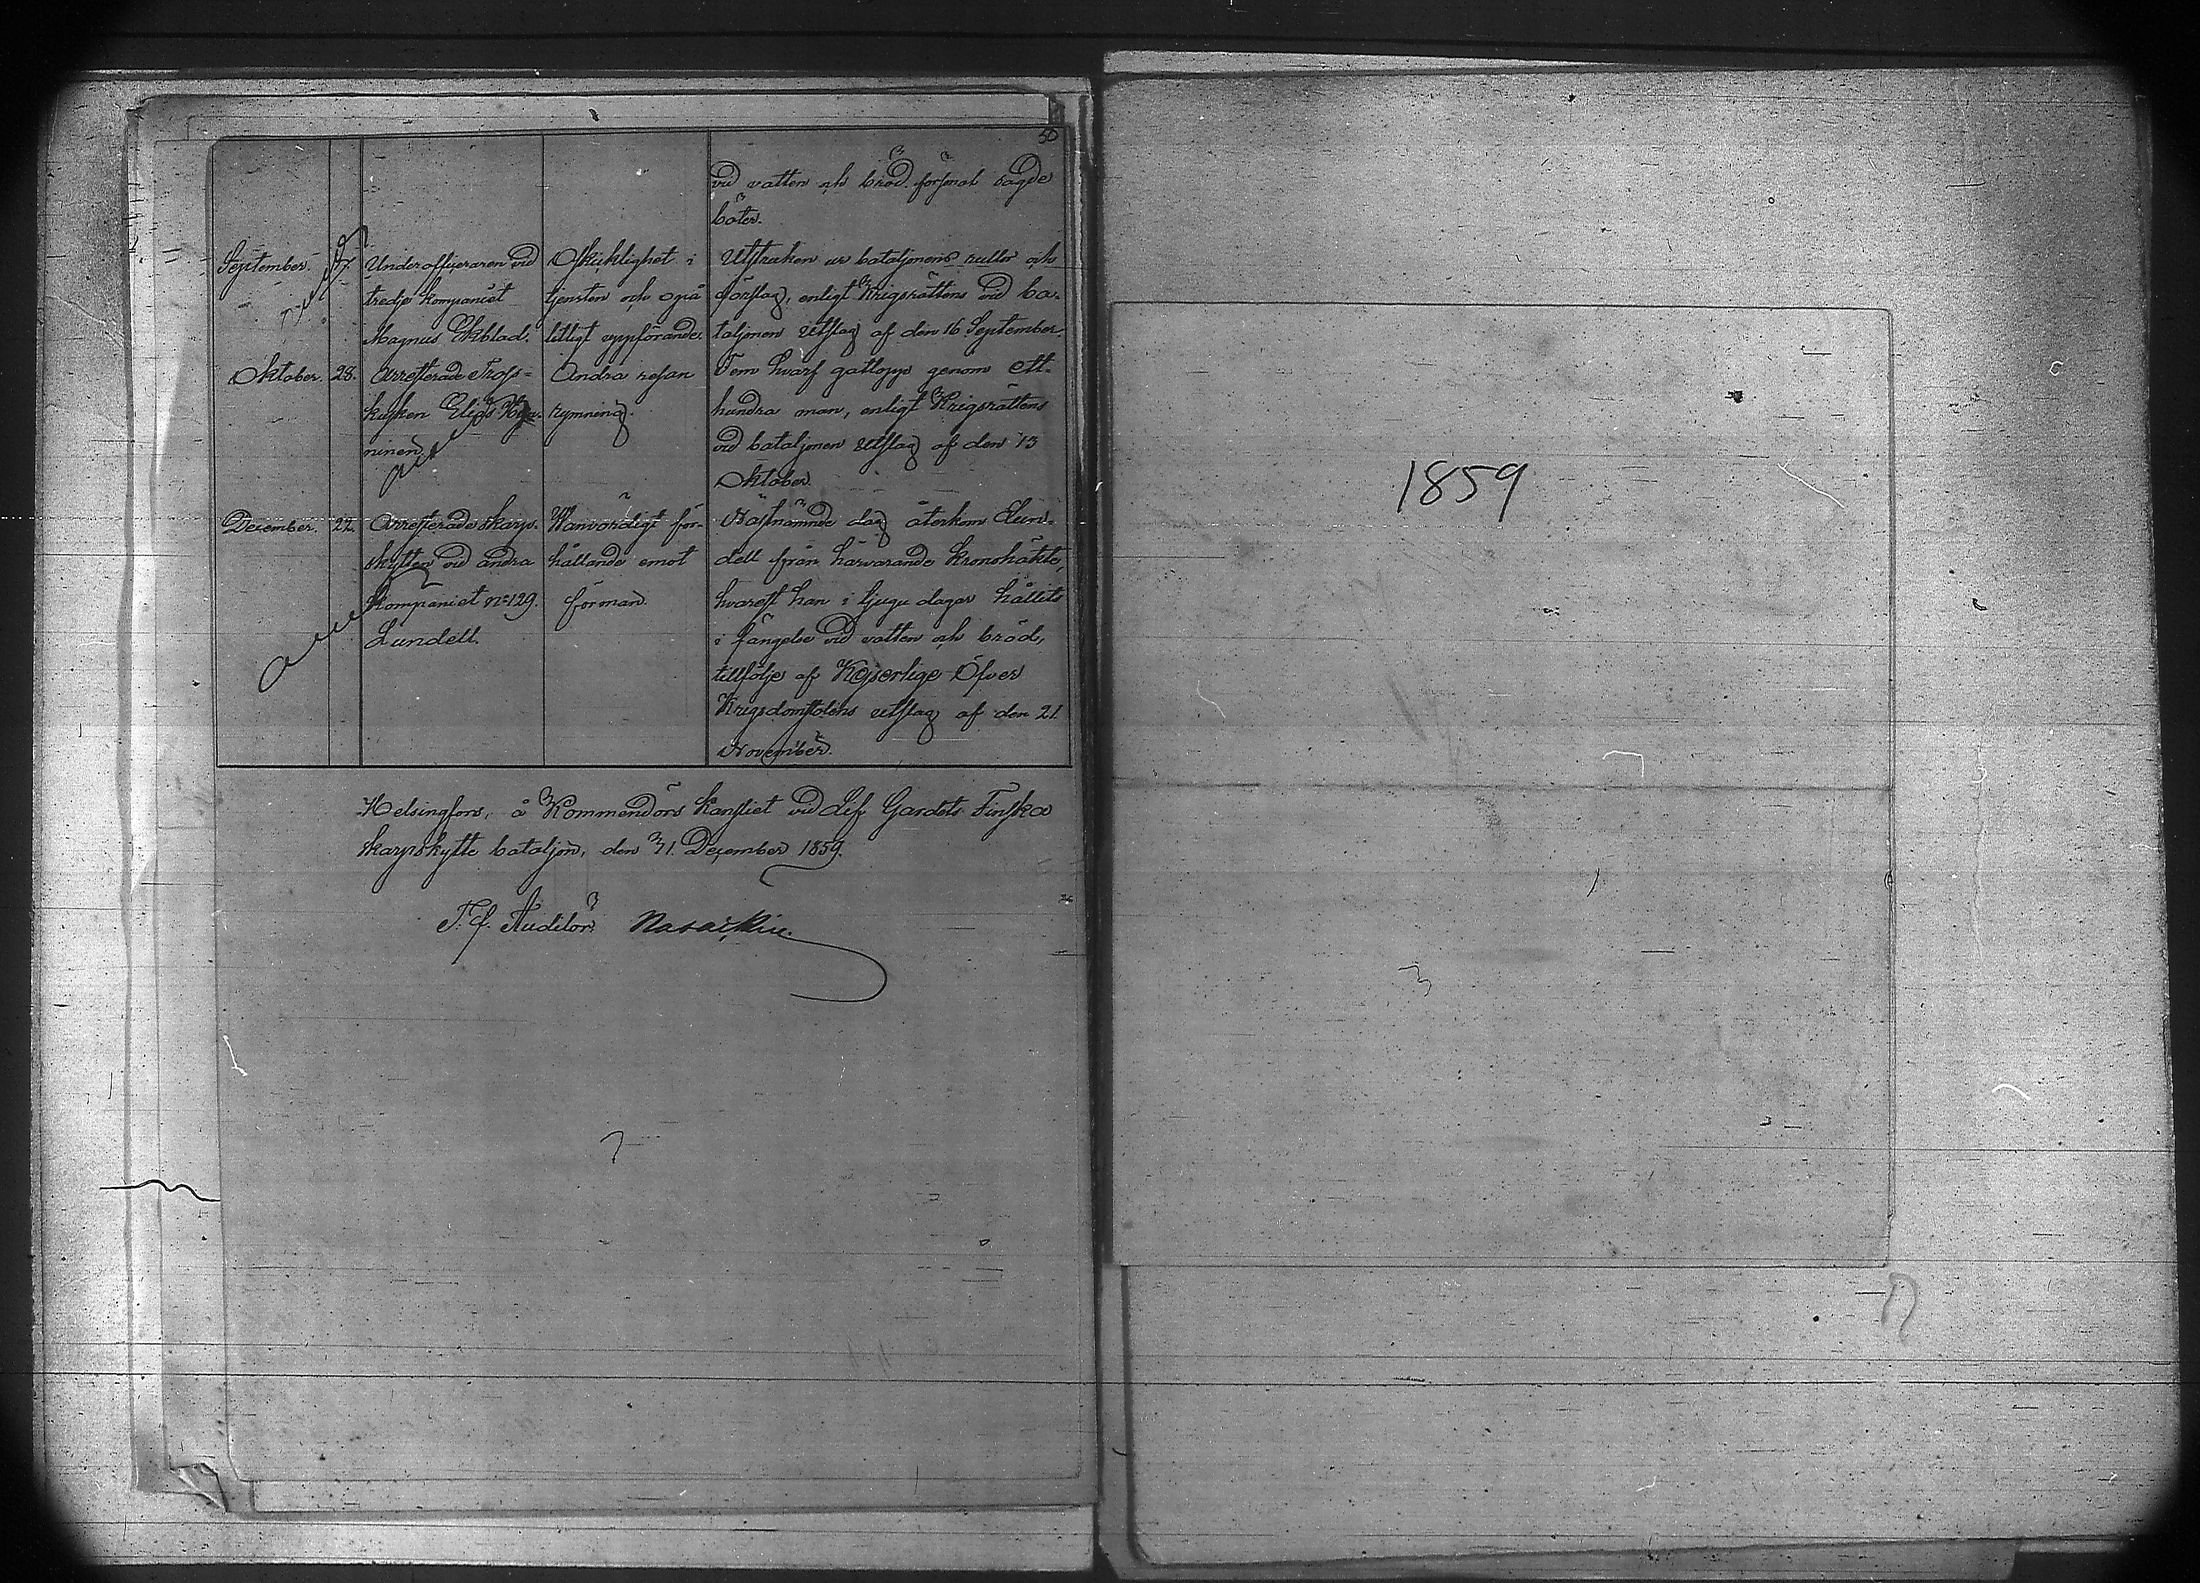 50
vid vatten och bröd förJnal sagde
böter.
September. 17. Underofficeraren vid Oskicklighet i Utstruken ur bataljonens rullor och
tredje kompaniet tjensten och opå förslag, enligt Krigsrättens vid ba-
Magnus Ekblad. litligt uppförande. taljonen utslag af den 16 September.
Oktober. 28. Arresterade Tross- Andra resan Fem hvarf gatlopp genom ett-
kusken Elias rymning. hundra man, enligt Krigsrättens
ninen. vid bataljonen utslag af den 13
Oktober.
December. 22. Arresterade skarp- Wanvördigt för- Nästnämnde dag återkom Lun-
skytten vid andra hållande emot dell från härvarande kronohäkte,
Kompaniet No 129. förman. hvarest han i tjugu dagar hållits
Lundell. i fängelse vid vatten och bröd,
tillfölje af Kejserlige Öfver
Krigsdomstolens utslag af den 21.
November.
Helsingfors, å Kommendörs Kansliet vid Lif Gardets Finska
skarpskytte bataljon, den 31. December 1859.
T. f. Auditör
1859